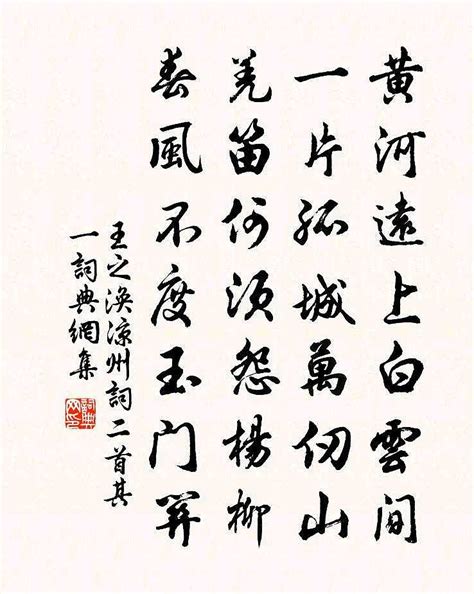 黄河遠上白雲間
一片孤城萬仞山
羌笛何須怨楊柳
春風不度玉門關
王之渙涼州詞二首其
一詞典網集
詞典网印